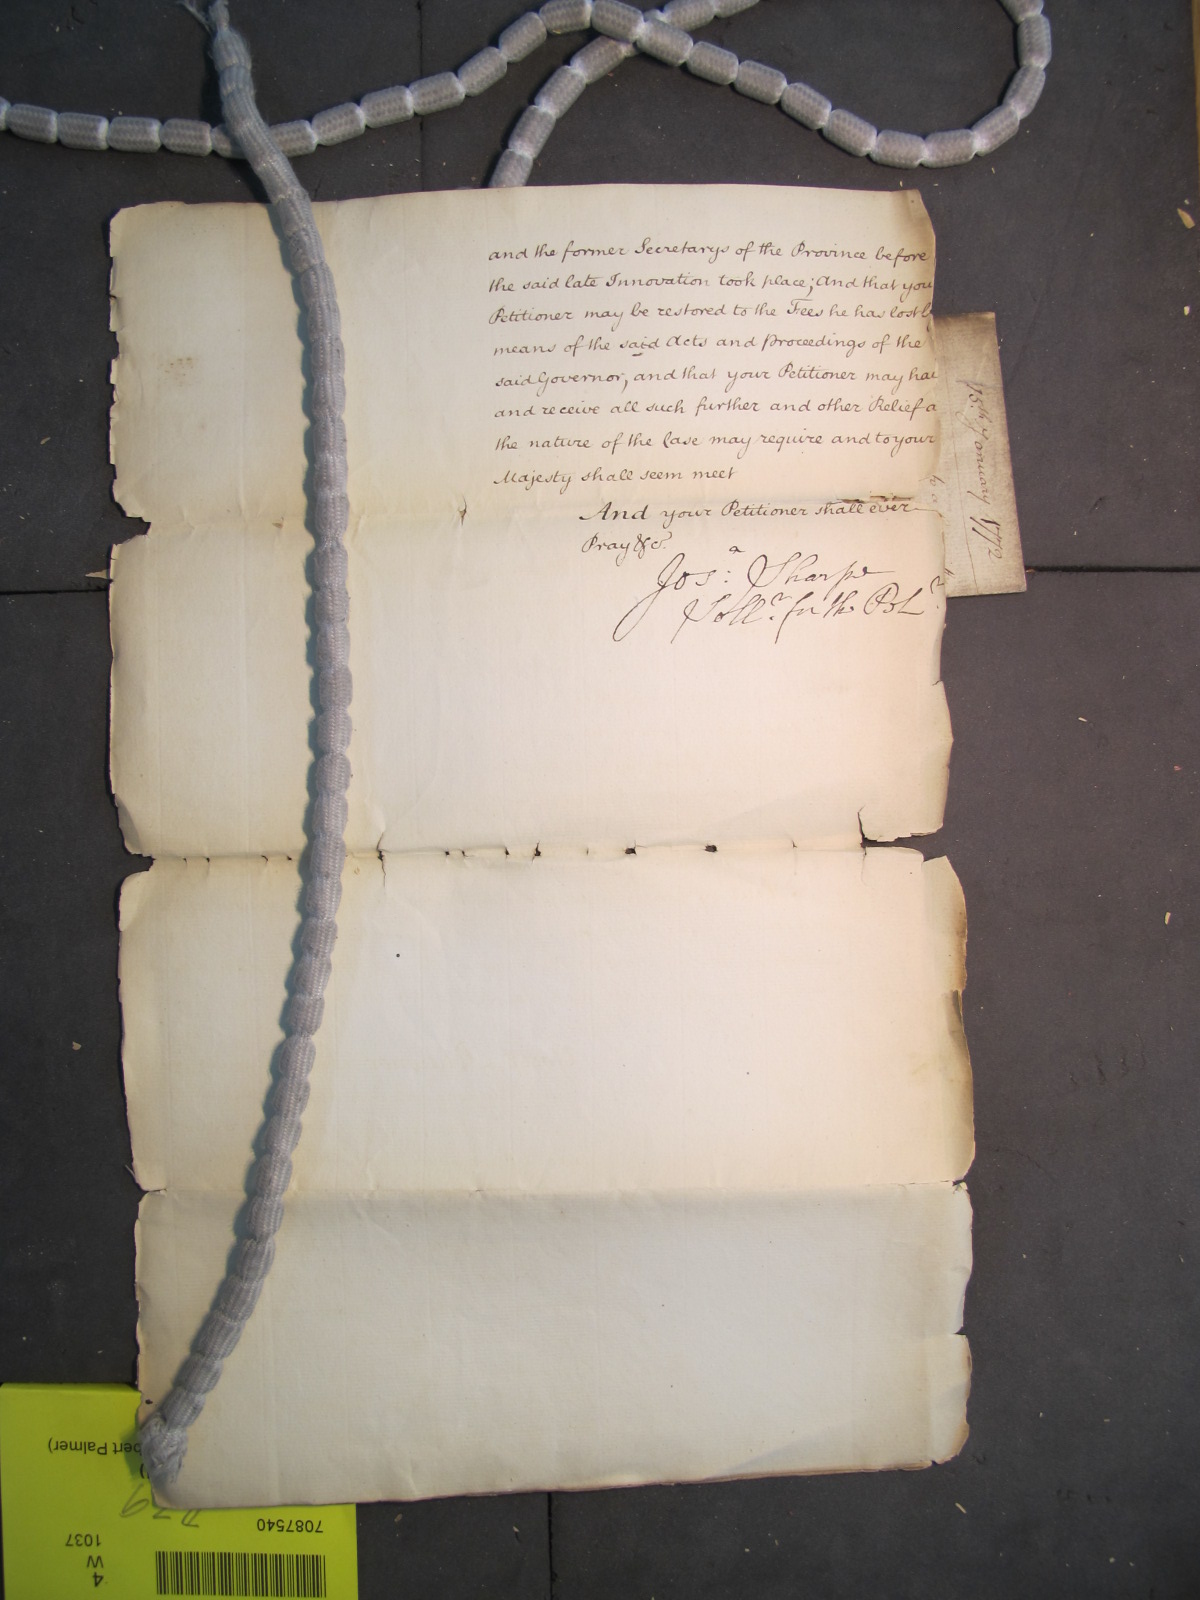 and the former Secretarys of the Province before
the said late Innovation took place; And that you
Petitioner may be restored to the Fees he has lost b
means of the said Acts and Proceedings of the
said Governor, and that your Petitioner may hav
and receive all such further and other Relief a
the nature of the Case may require and to your
Majesty shall seem meet
And your Petitioner shall ever
Pray &c.
Jos:a Sharpe
Sollr. for the Petr.
15th January 1772
bert Palmer)
)
739
7087540
1037
W
4